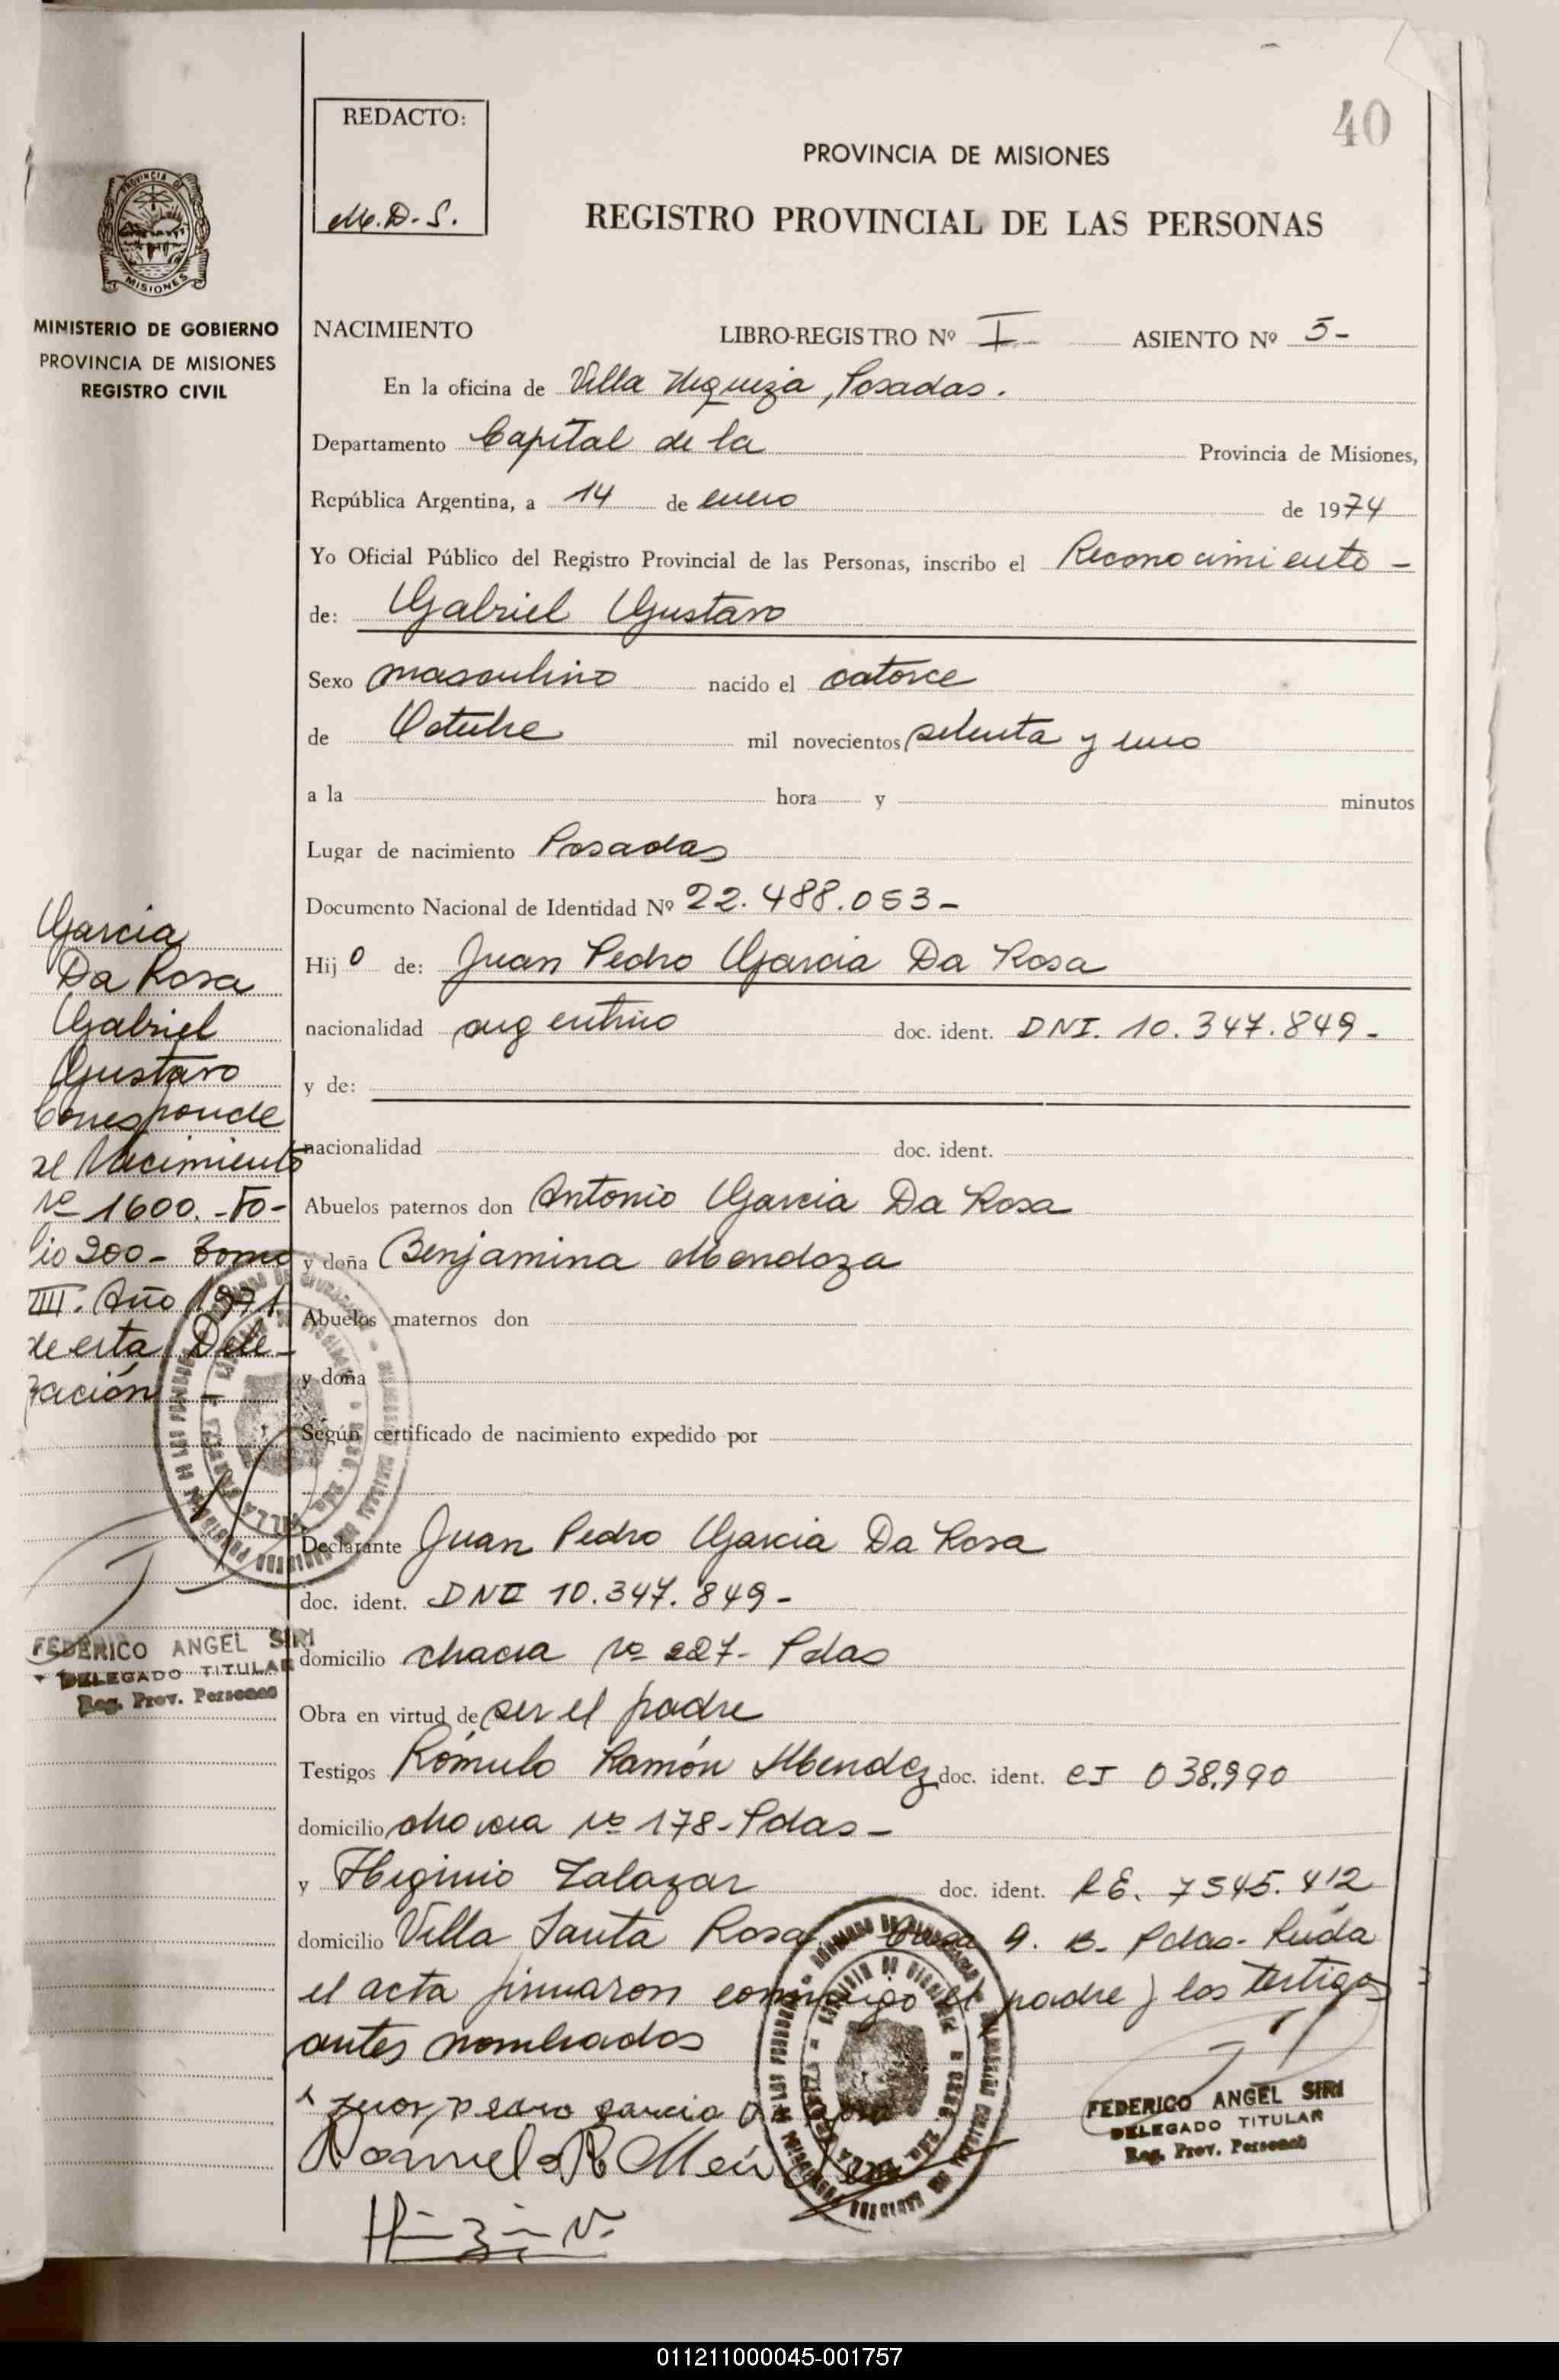 40
REDACTO:
M.D.S.
PROVINCIA DE MISIONES
REGISTRO PROVINCIAL DE LAS PERSONAS
PROVINCIA DE
MISIONES
MINISTERIO DE GOBIERNO
PROVINCIA DE MISIONES
REGISTRO CIVIL
NACIMIENTO LIBRO-REGISTRO Nº I.- ASIENTO Nº 5-
En la oficina de Villa Urquiza, Posadas.
Departamento Capital de la Provincia de Misiones,
República Argentina, a 14 de enero de 1974
Yo Oficial Público del Registro Provincial de las Personas, inscribo el Reconocimiento -
de: Gabriel Gustavo
Sexo masculino nacido el catorce
de Octubre mil novecientos setenta y uno
a la hora y minutos
Lugar de nacimiento Posadas
Documento Nacional de Identidad Nº 22.488.053-
Hijo de: Juan Pedro Garcia Da Rosa
nacionalidad argentino doc. ident. DNI. 10.347.849-
y de:
nacionalidad doc. ident.
Abuelos paternos don Antonio Garcia Da Rosa
y doña Benjamina Mendoza
Abuelos maternos don
y doña
Según certificado de nacimiento expedido por
Declarante Juan Pedro Garcia Da Rosa
doc. ident. DNI 10.347.849-
domicilio chacra Nº 227- Pdas
Obra en virtud de ser el padre
Testigos Rómulo Ramón Mendez doc. ident. CI 038.990
domicilio chacra Nº 178-Pdas-
y Higinio Zalazar doc. ident. LE. 7545.412
domicilio Villa Santa Rosa, 9. B. Pdas- Leida
el acta firmaron conmigo el padre y los testigos
antes nombrados
Juan pedro garcia Da Rosa
Romulo R Men
Garcia
Da Rosa
Gabriel
Gustavo
Corresponde
al Nacimiento
Nº 1600.-Fo-
lio 200- Tomo
III. Año 1971
de esta Dele-
gación -
FEDERICO ANGEL SIRI
DELEGADO TITULAR
Reg. Prov. Personas
FEDERICO ANGEL SIRI
DELEGADO TITULAR
Reg. Prov. Personas
011211000045-001757